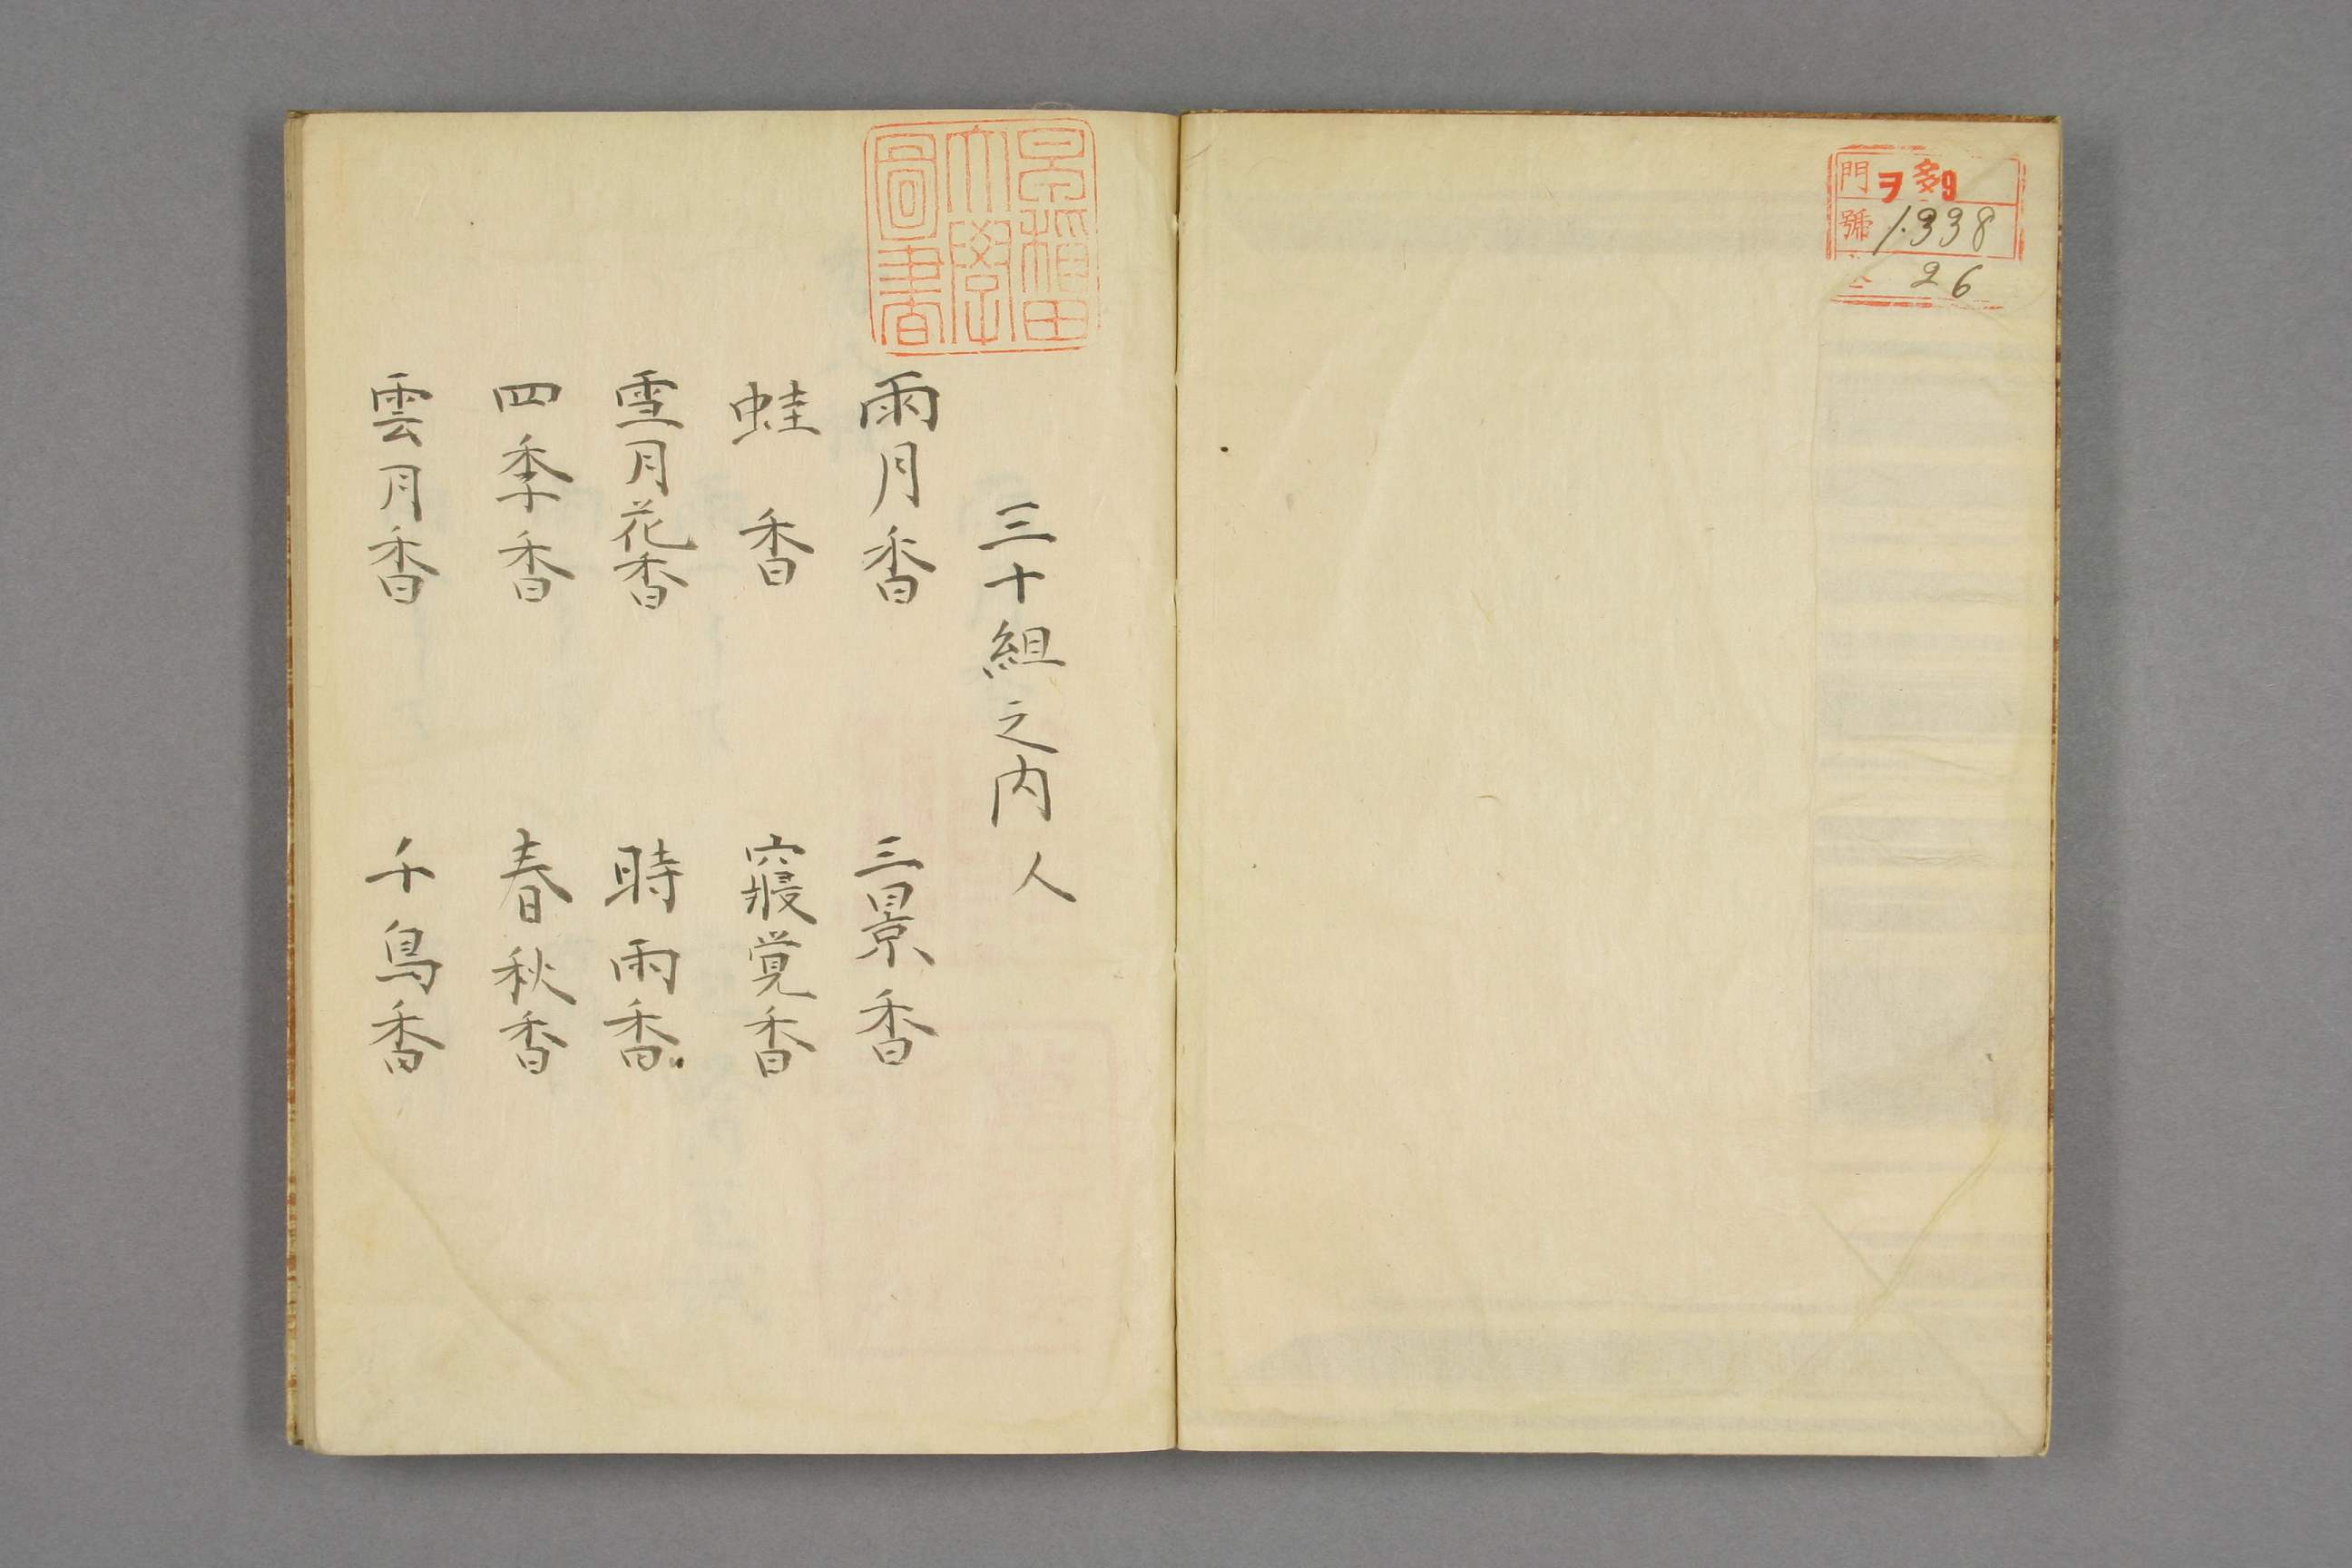 門 ヲ 9
號 1338
26
早稲田
大學
圖書
三十組之内 人
雨月香 三景香
蛙 香 寢覚香
雪月花香 時雨香
四季香 春秋香
雲月香 千鳥香